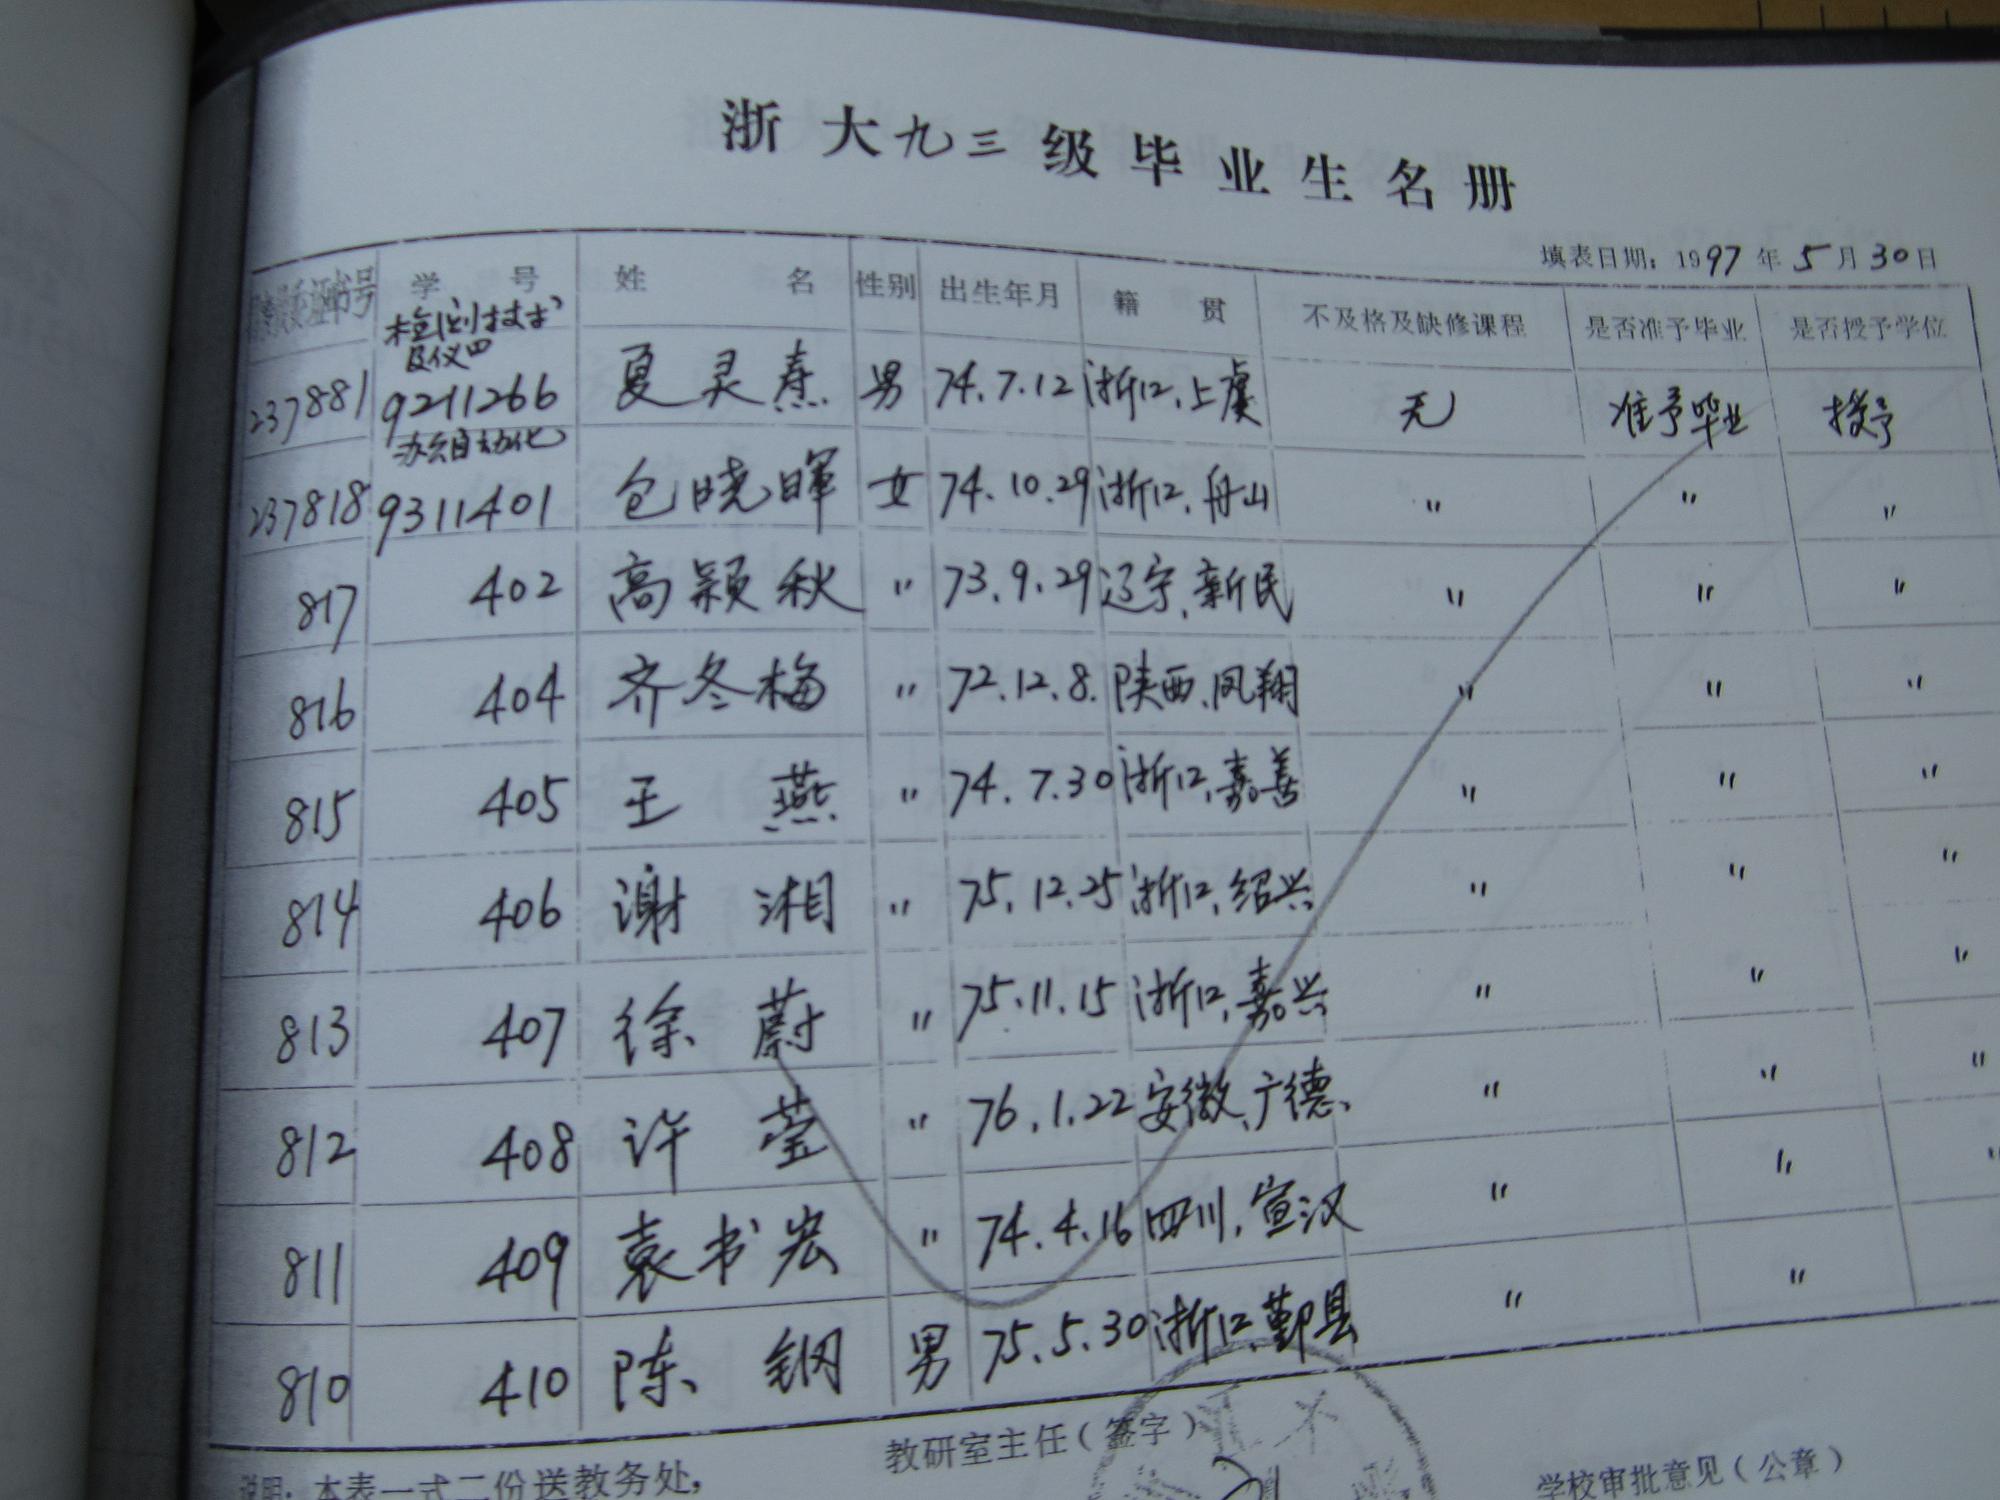 浙大九三级毕业生名册
填表日期：1997年5月30日
证书号 学号 姓名 性别 出生年月 籍贯 不及格及缺修课程 是否准予毕业 是否授予学位
检测技术
及仪四
237881 9211266 夏灵焘 男 74.7.12 浙江、上虞 无 准予毕业 授予
办公自动化
237818 9311401 包晓晖 女 74.10.29 浙江、舟山 〃 〃 〃
817 402 高颖秋 〃 73.9.29 辽宁、新民 〃 〃 〃
816 404 齐冬梅 〃 72.12.8. 陕西、凤翔 〃 〃 〃
815 405 王燕 〃 74.7.30 浙江、嘉善 〃 〃 〃
814 406 谢湘 〃 75.12.25 浙江、绍兴 〃 〃 〃
813 407 徐蔚 〃 75.11.15 浙江、嘉兴 〃 〃 〃
812 408 许莹 〃 76.1.22 安徽、广德、 〃 〃 〃
811 409 袁书宏 〃 74.4.16 四川、宣汉 〃 〃 〃
810 410 陈钢 男 75.5.30 浙江、鄞县 〃 〃
教研室主任（签字） 学校审批意见（公章）
说明：本表一式二份送教务处，